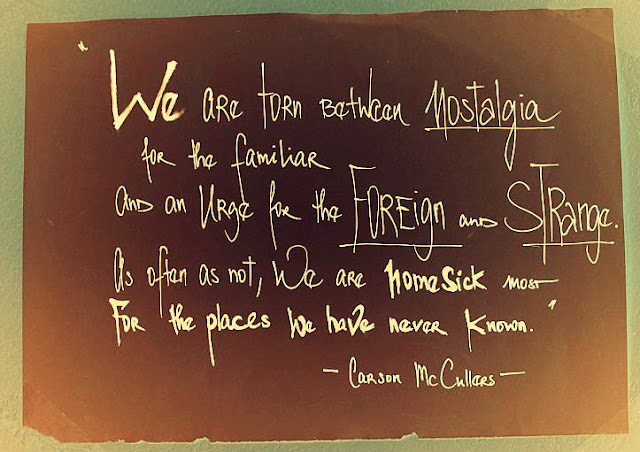 "We are torn between nostalgia
for the familiar
and an urge for the FOREign and STRange.
As often as not, we are homesick most
For the places we have never known."
- Carson McCullers -